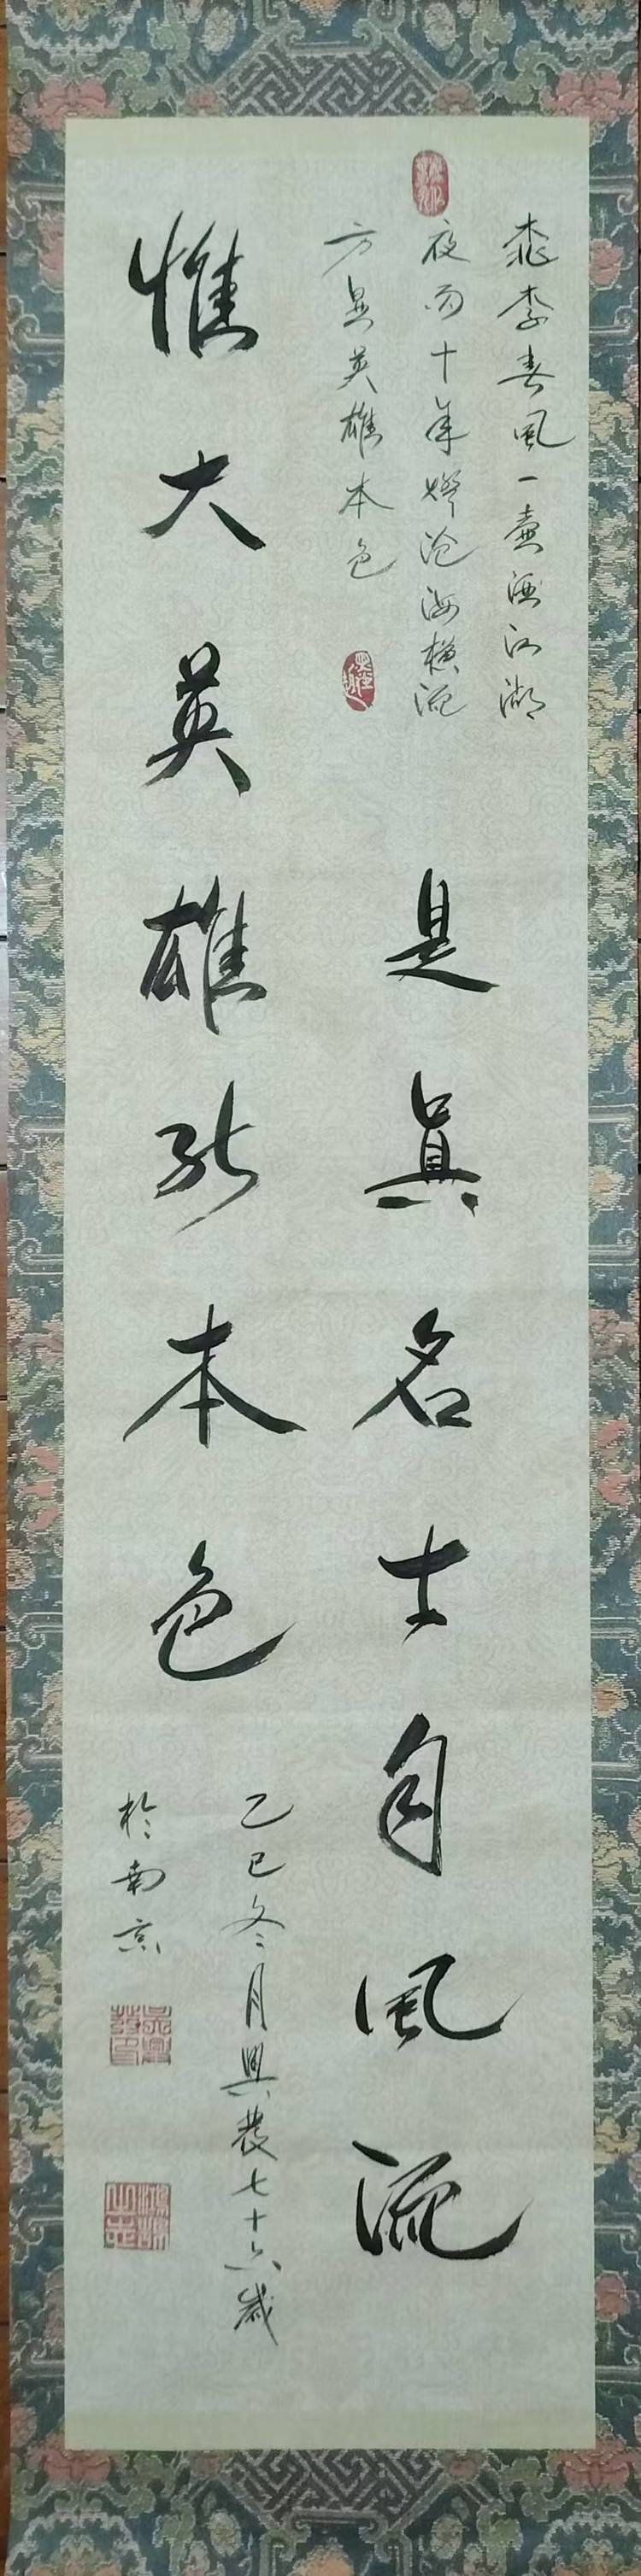 桃李春風一壺酒江湖
夜雨十年燈滄海橫流
方显英雄本色
是真名士自風流
惟大英雄能本色
乙巳冬月興發七十六歲
於南京